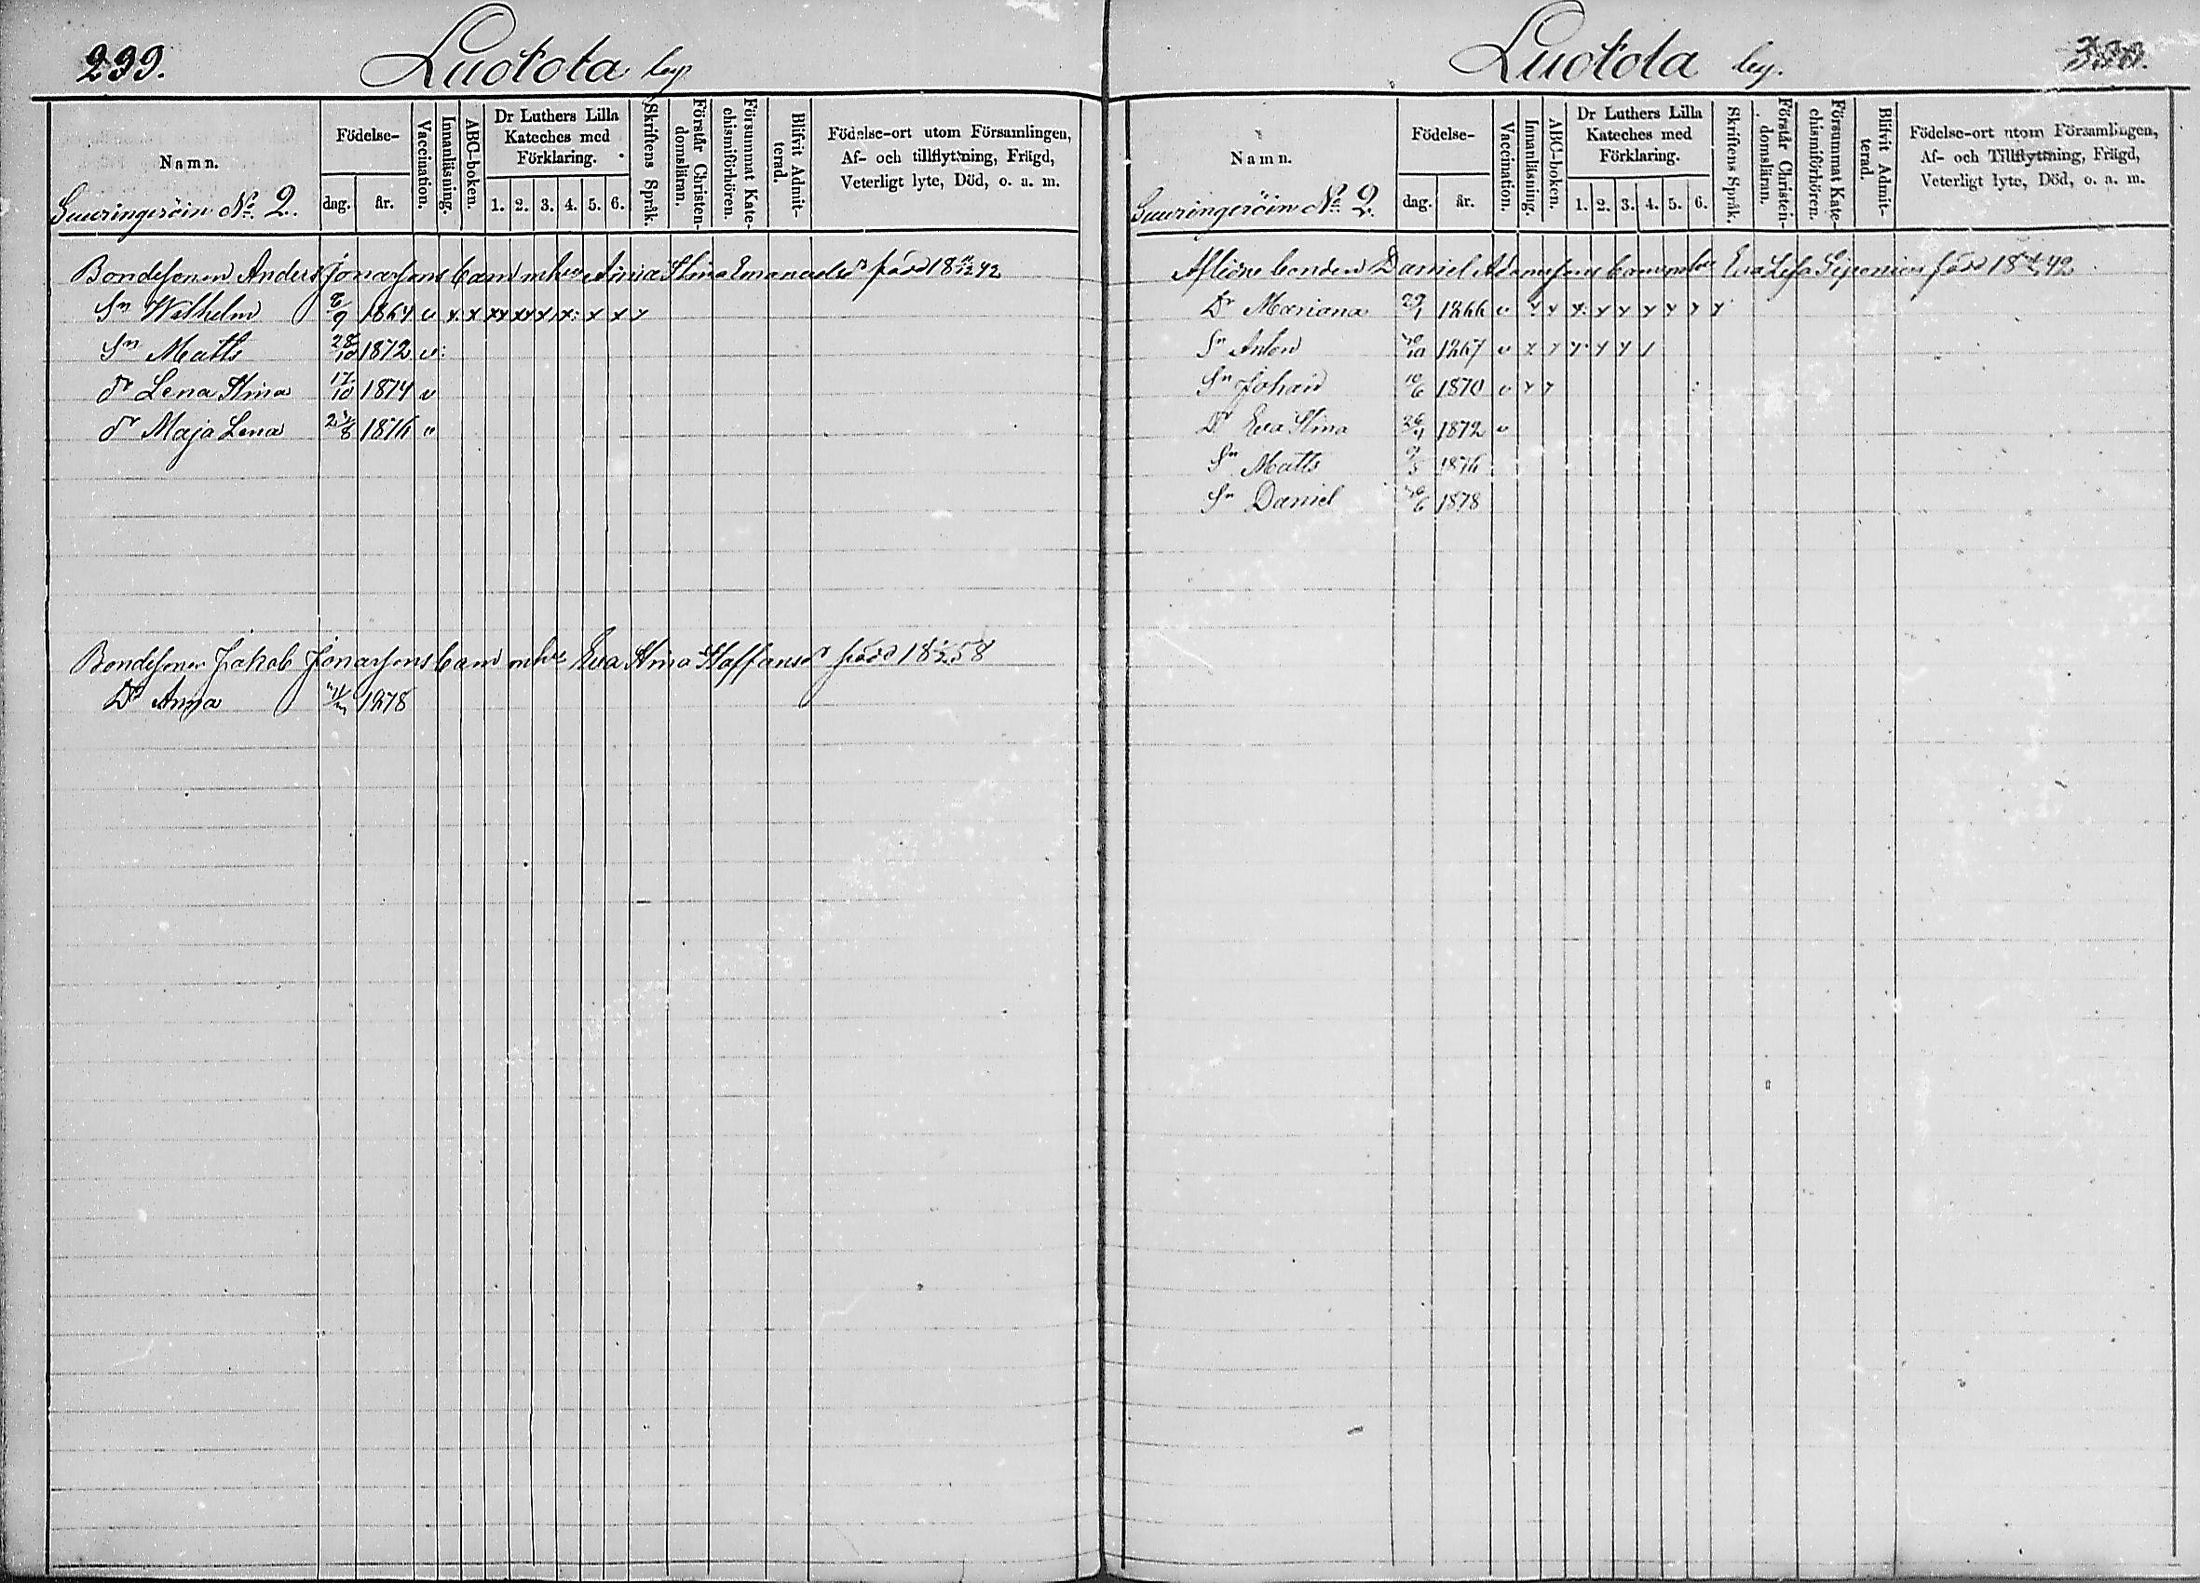 299.
Luotola by.
Namn.
Födelse-
dag.
år.
Vaccination.
Innanläsning.
ABC-boken.
Dr Luthers Lilla
Kateches med
Förklaring.
1. 2. 3. 4. 5. 6.
Skriftens Språk.
Förstår Christen-
domsläran.
Försummat Kate-
chismiförhören.
Blifvit Admit-
terad.
Födelse-ort utom Församlingen,
Af- och tillflyttning, Frägd,
Veterligt lyte, Död, o. a. m.
No 2.
Bondesonen Anders Jonassons barn m hu Anna Stina Emanuelsdr född 18 42
Sn Wilhelm 8/9 1864 v x x xx xx x x x x x
Sn Matts 28/10 1872 v
dr Lena Stina 17/10 1874 v
dr Maja Lena 1876 v
Bondesonen Jakob Jonassons barn m hu Eva Stina Staffansdr född 18 58
Dr Anna 1878
Luotola by.
300.
Namn.
Födelse-
dag.
år.
Vaccination.
Innanläsning.
ABC-boken.
Dr Luthers Lilla
Kateches med
Förklaring.
1. 2. 3. 4. 5. 6.
Skriftens Språk.
Förstår Christen-
domsläran.
Försummat Kate-
chismiförhören.
Blifvit Admit-
terad.
Födelse-ort utom Församlingen,
Af- och Tillflyttning, Frägd,
Veterligt lyte, Död, o. a. m.
No 2.
Aflidne bonden Daniel Adamssons barn m hu Eva Lisa Siponien född 18 42
Dr Mariana 29/1 1866 v x x x x x x x x x
Sn Anton 1867 v x x x x x x
Sn Johan 10/6 1870 v x x
Dr Eva Stina 1872 v
Sn Matts 1876
Sn Daniel 1878